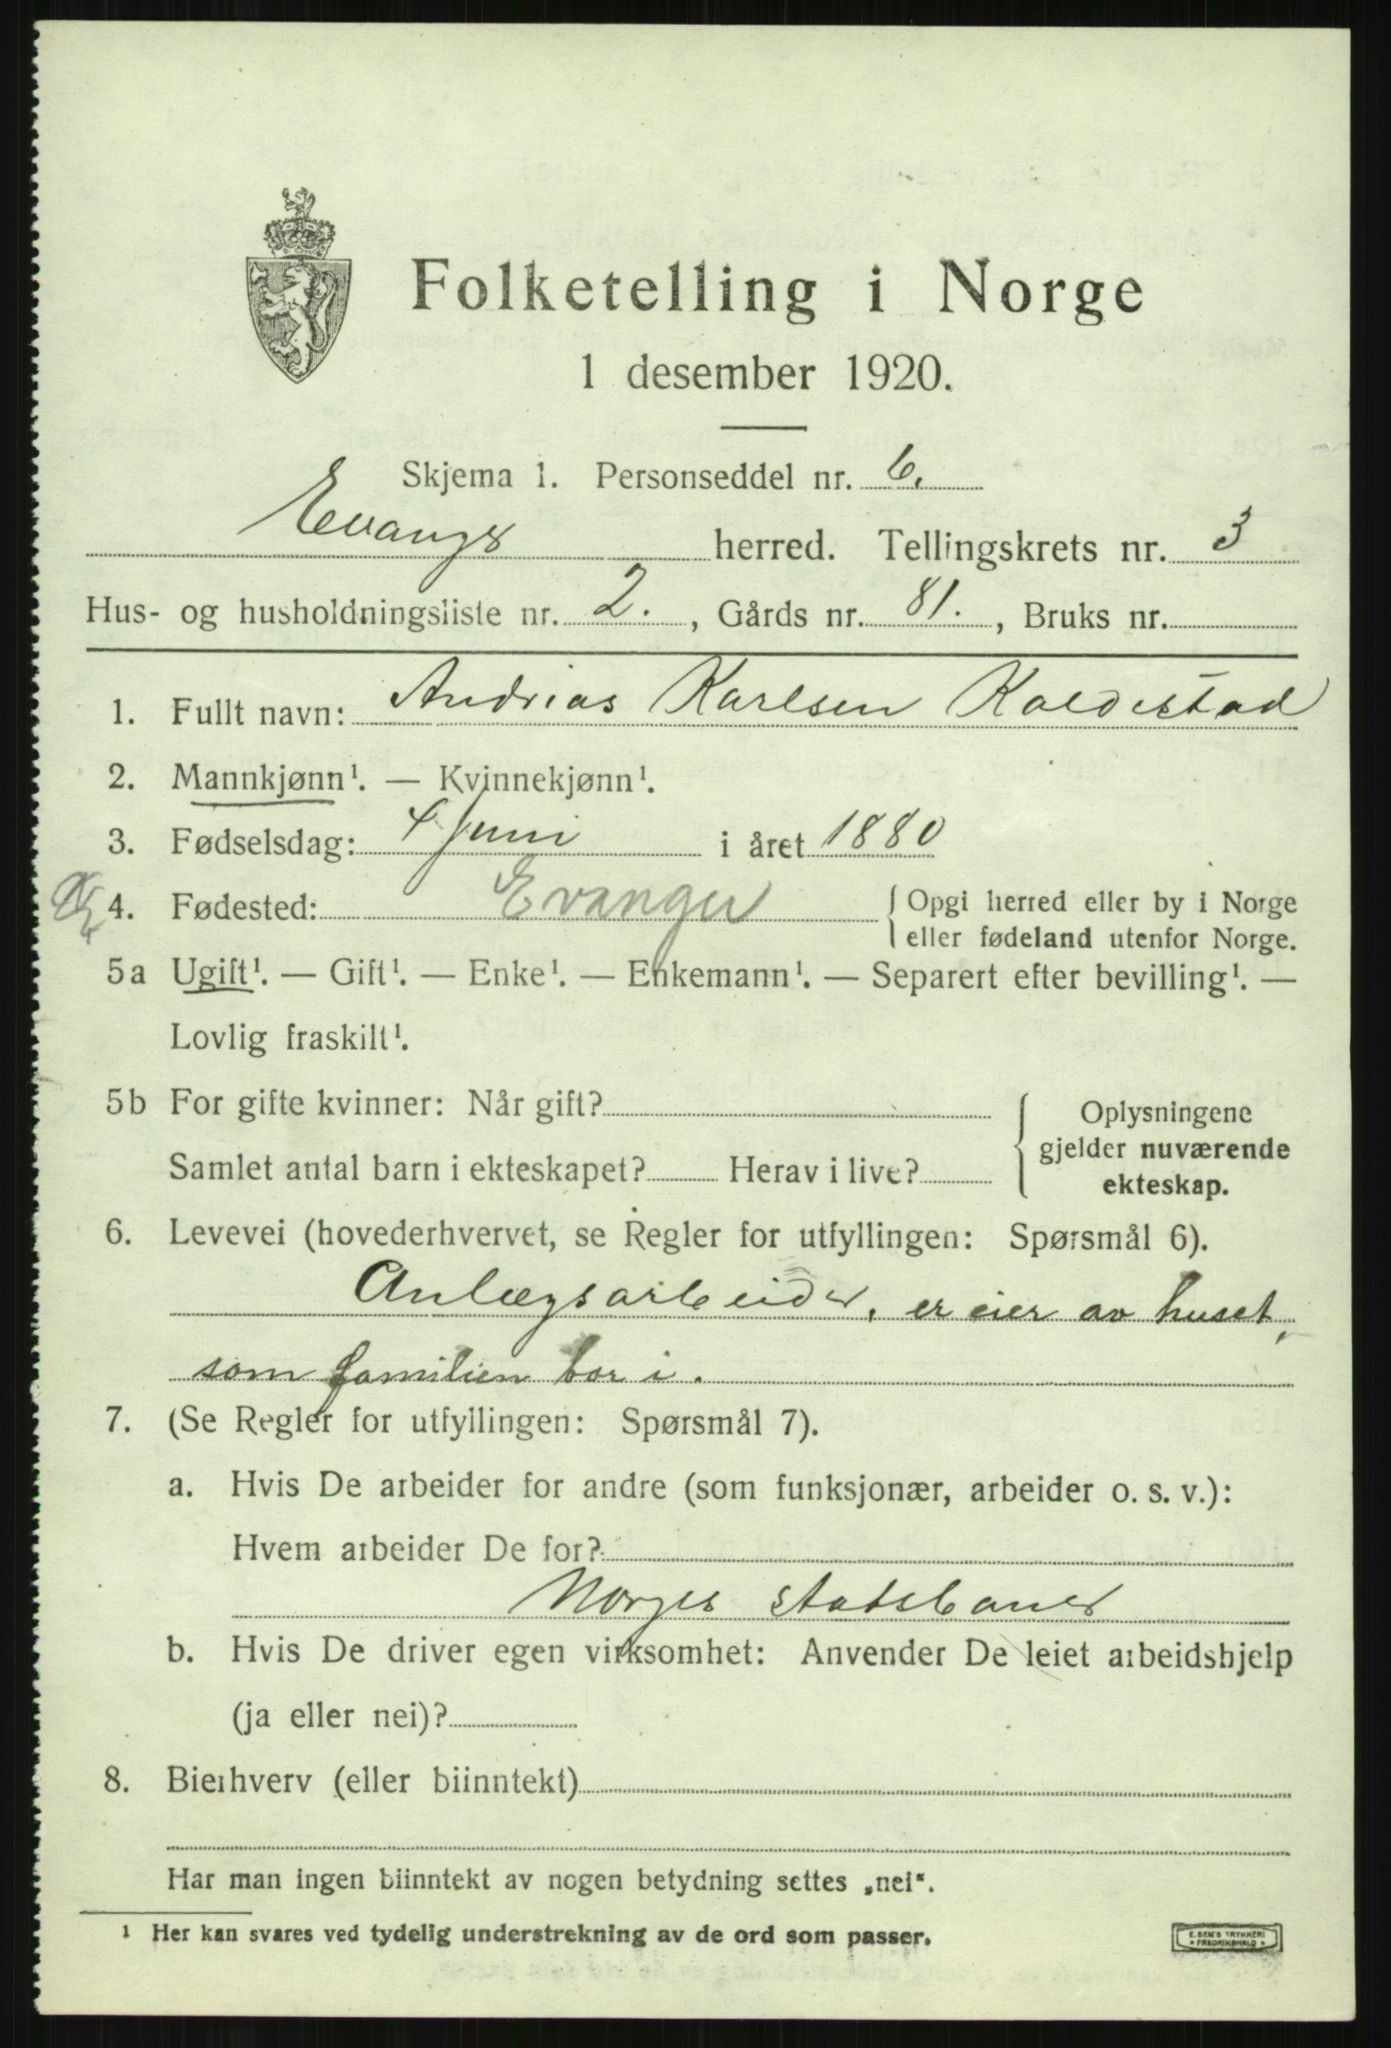 Folketelling i Norge
1 desember 1920.
Skjema 1. Personseddel nr. 6.
Evangs herred. Tellingskrets nr. 3
Hus- og husholdningsliste nr. 2. , Gårds nr. 81. , Bruks nr.
1. Fullt navn: Andrias Karlsen Kaldestad
2. Mannkjønn¹. — Kvinnekjønn¹.
3. Fødselsdag: 4 juni i året 1880
4. Fødested: Evanger { Opgi herred eller by i Norge
eller fødeland utenfor Norge.
5a Ugift¹. — Gift¹. — Enke¹. — Enkemann¹. — Separert efter bevilling¹. —
Lovlig fraskilt¹.
5b For gifte kvinner: Når gift?
Samlet antal barn i ekteskapet? Herav i live?
Oplysningene
gjelder nuværende
ekteskap.
6. Levevei (hovederhvervet, se Regler for utfyllingen: Spørsmål 6).
Anlægsarbeider, er eier av huset,
som familien bor i.
7. (Se Regler for utfyllingen: Spørsmål 7).
a. Hvis De arbeider for andre (som funksjonær, arbeider o. s. v.):
Hvem arbeider De for?
Norges statsbaner
b. Hvis De driver egen virksomhet: Anvender De leiet arbeidshjelp
(ja eller nei)?
8. Bierhverv (eller biinntekt)
Har man ingen biinntekt av nogen betydning settes „nei“.
¹ Her kan svares ved tydelig understrekning av de ord som passer.
E. SEM'S TRYKKERI
FREDRIKSHALD